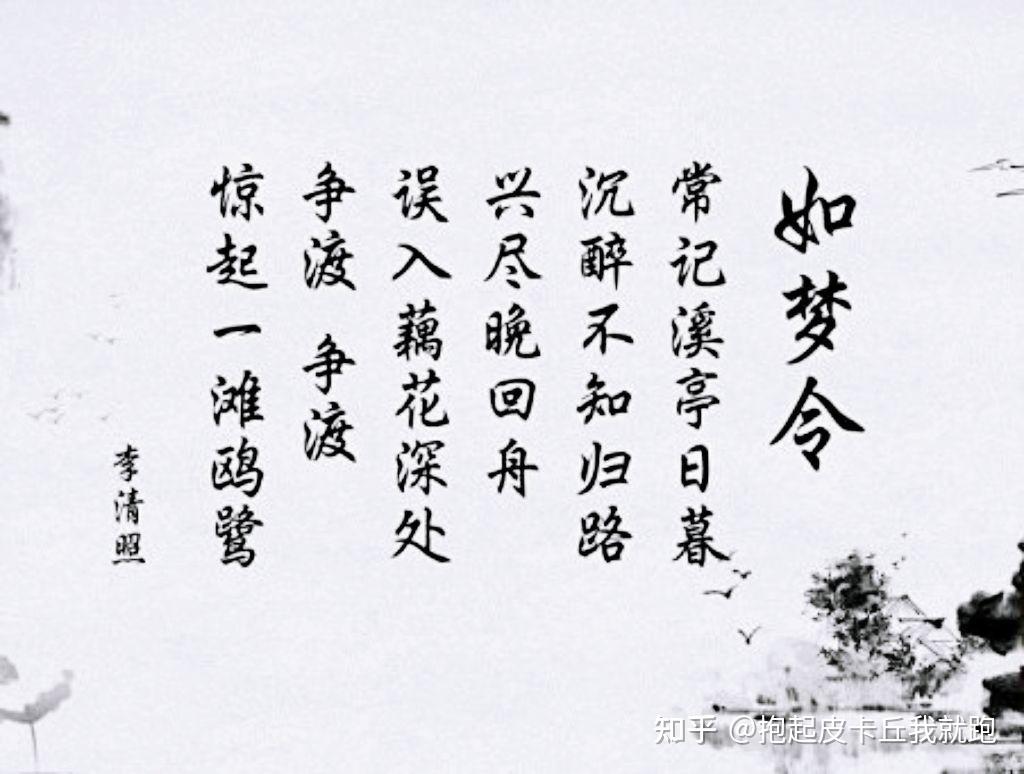 如梦令
常记溪亭日暮
沉醉不知归路
兴尽晚回舟
误入藕花深处
争渡 争渡
惊起一滩鸥鹭
李清照
知乎 @抱起皮卡丘我就跑